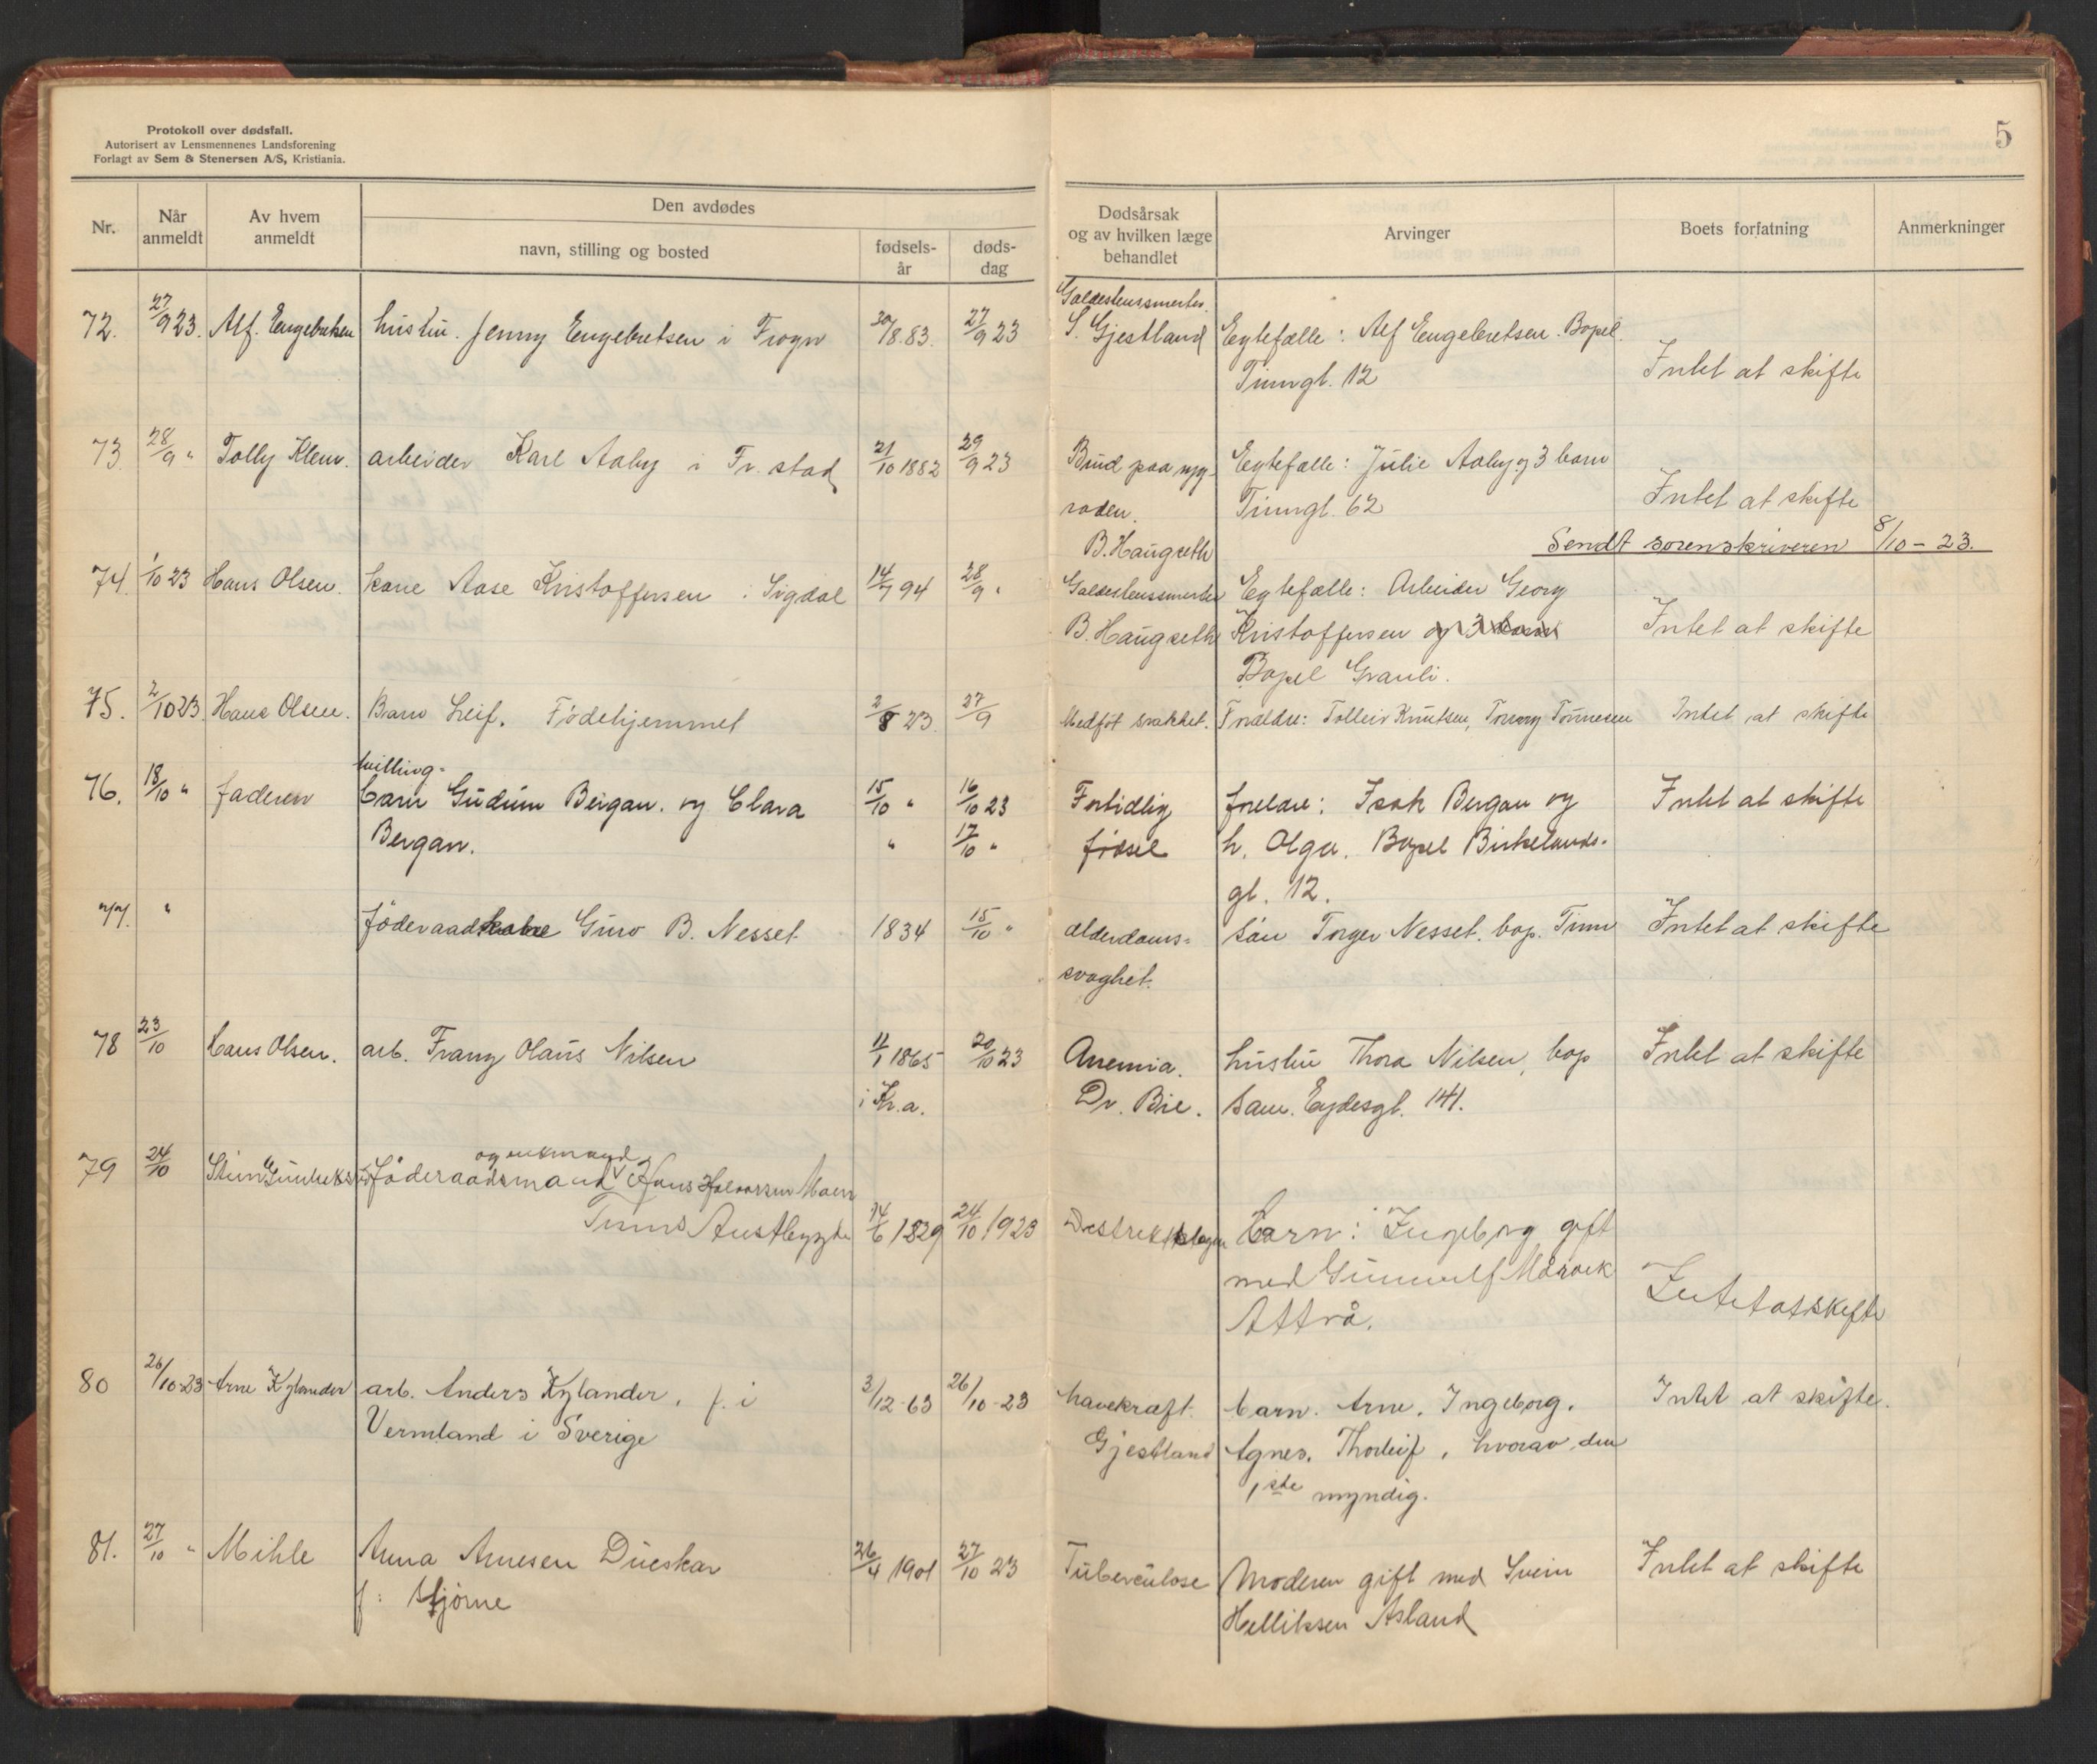 Protokoll over dødsfall.
Autorisert av Lensmennenes Landsforening
Forlagt av Sem & Stenersen A/S, Kristiania.
5
Nr.
Når anmeldt
Av hvem anmeldt
Den avdødes
navn, stilling og bosted
fødsels-år
døds-dag
Dødsårsak og av hvilken læge behandlet
Arvinger
Boets forfatning
Anmerkninger
72. 27/9 23. Alf. Engebretsen hustru. Jenny Engebretsen i Frogn 30/8.83. 27/9 23 Galdestenssmerter. Egtefælle: Alf Engebretsen. Bopel.
S. Gjestland Tinngt. 12 Intet at skifte
73. 28/9 " Tolly Klem. arbeider Karl Aaby i Fr. stad 21/10 1882 29/9 23 Brud paa ryg- Egtefælle: Julie Aaby og 3 barn
raden. Tinngt. 62 Intet at skifte
B. Haugseth Sendt sorenskriveren 8/10 - 23.
74. 1/10 23 Hans Olsen. kone Aase Kristoffersen i Sigdal 14/7 94 28/9 " Galdestenssmerter Egtefælle: Arbeider Georg
B. Haugseth Kristoffersen og 3 barn Intet at skifte
Bopel Grauli.
75. 2/10 23 Hans Olsen. Barn Leif. Fødehjemmet 2/8 23. 27/9 Medføt svakhet. Foreldre: Tolleiv Knutsen, Tønnesen Intet at skifte
tvilling-
76. 18/10 " faderen barn Gudrun Bergan. og Clara 15/10 " 16/10 23 Fortidlig foreldre: Isak Bergan og Intet at skifte
Bergan. " 17/10 " fødsel h. Olga. Bopel Birkelands-
gt. 12.
77. " føderaadskone Guro B. Nesset 1834 15/10 " alderdoms- søn Torger Nesset. bop. Tinn Intet at skifte
svaghet.
78 23/10 Hans Olsen. arb. Franz Olaus Nilsen 11/1 1865 20/10 23 Anemia. hustru Thora Nilsen, bop Intet at skifte
i Kr.a. Dr. Bie. Sam. Eydesgt. 141.
og enkmand
79 24/10 Føderaadsmand Hans Halvorsen Moen
Tinns Austbygde 14/6 1829 24/10 1923 Barn: Ingeborg gift
med Gunnulf Mårvik
Attrå. Intet at skifte
80 26/10-23 Arne Kylander arb. Anders Kylander, f. i 3/12-63 26/10-23 Mavekræft. barn. Arne. Ingeborg. Intet at skifte.
Vermland i Sverige Gjestland Agnes. Thorleif, hvorav den
1ste myndig.
81. 27/10 " Mihle Anna Arnesen Dueskar 26/4 1901 27/10 23 Tuberculose Moderen gift med Svein Intet at skifte
f: Hjørne Helliksen Asland